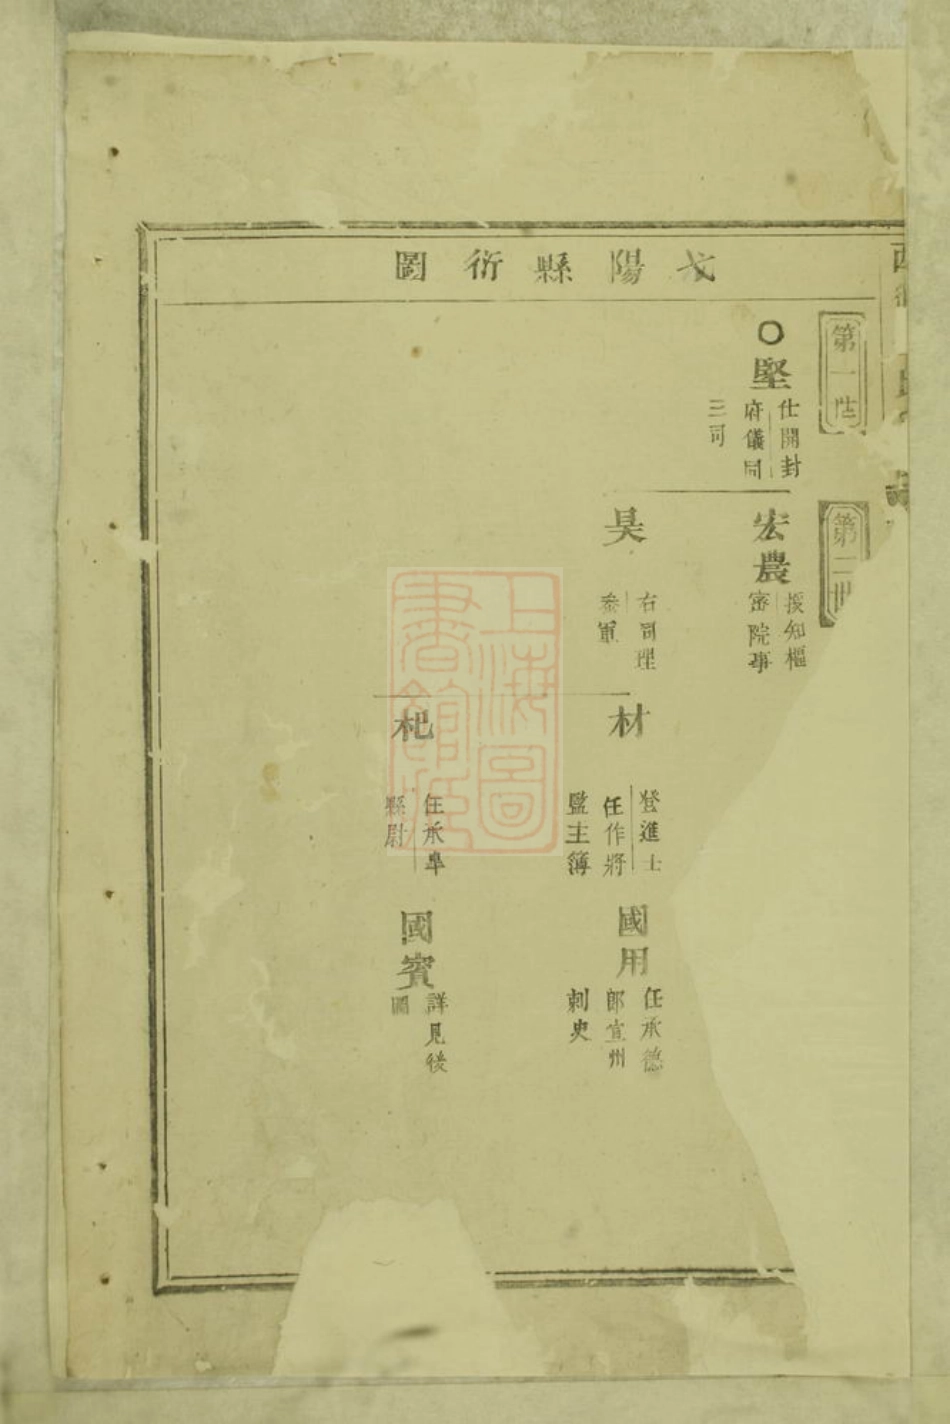 弋陽縣衍圖
第一世
第二世
堅
仕開封
府儀同
三司
宏農
授知樞
密院事
昊
右司理
叅軍
材
登進士
任作將
監主簿
杞
任承阜
縣尉
國用
任承德
郎宣州
刺史
國賓
詳見後
圖
上海圖
書館藏